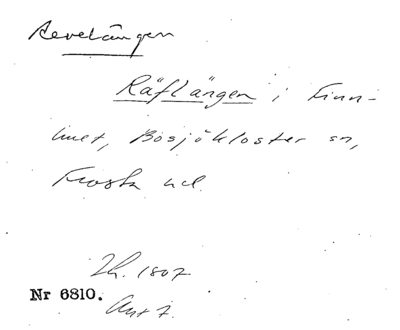 Revelängen
Räflängen i Finn-
hult, Bosjökloster sn,
Frosta hd.
Th. 1807
Nr 6810.
Avt 7.